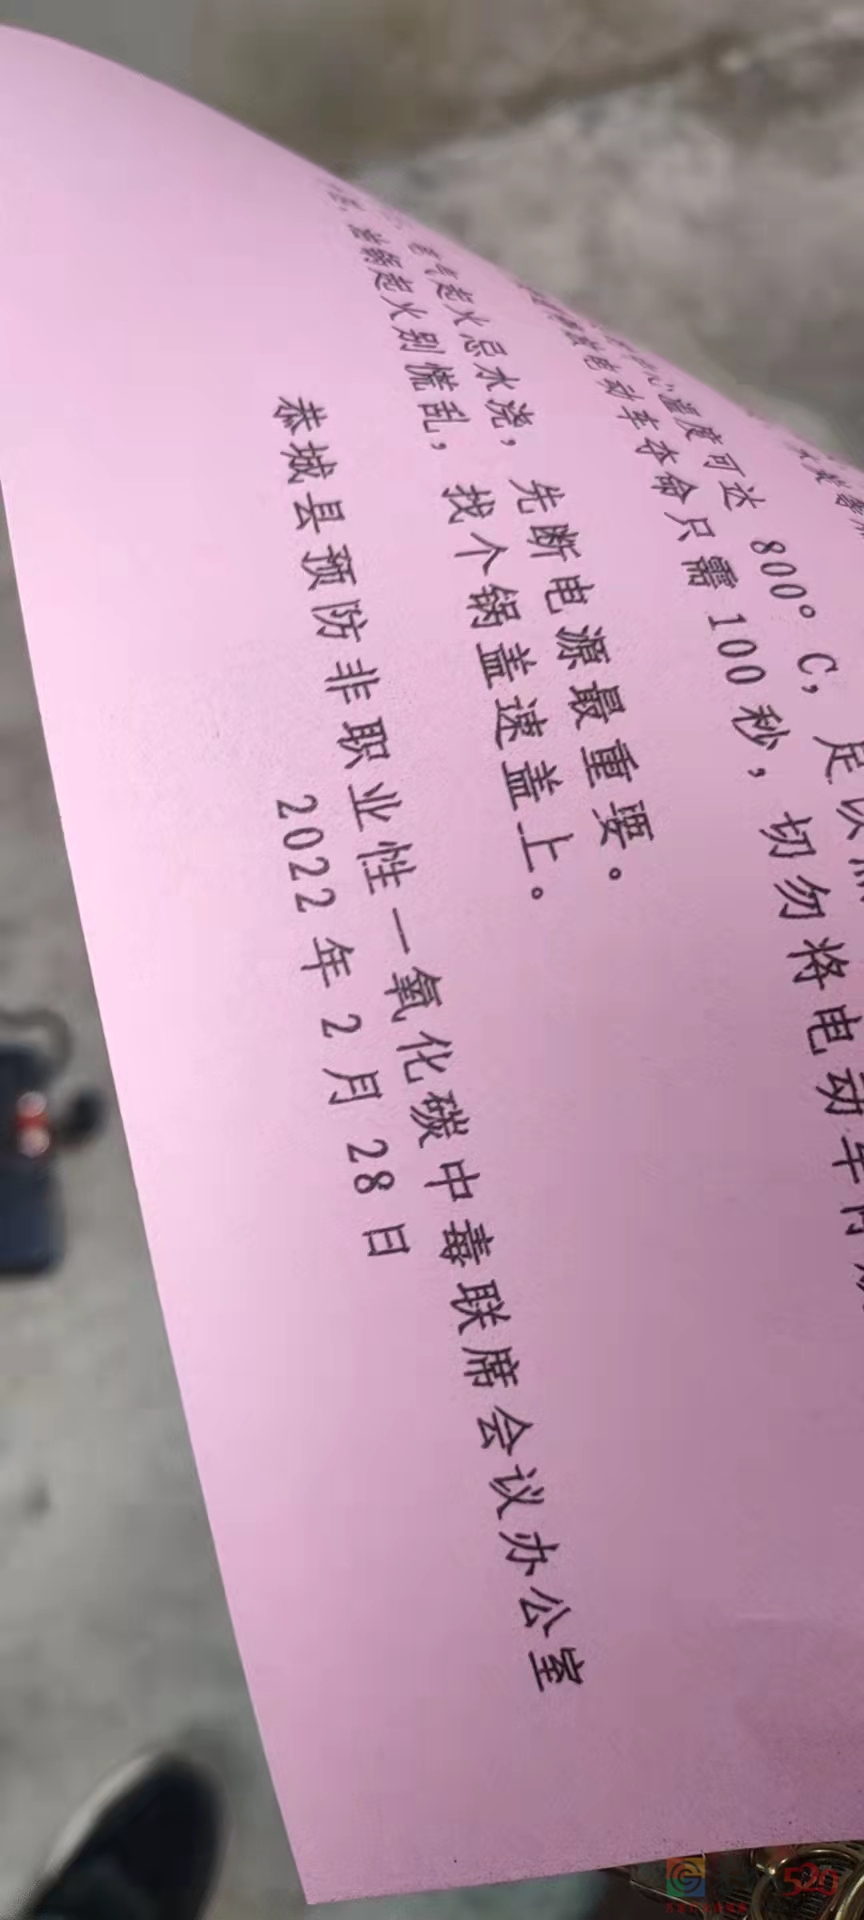 心温度可达 800°C，足以
电动车夺命只需 100 秒，切勿将电动车
电起火忌水浇，先断电源最重要。
起火别慌乱，找个锅盖速盖上。
恭城县预防非职业性一氧化碳中毒联席会议办公室
2022 年 2 月 28 日
520